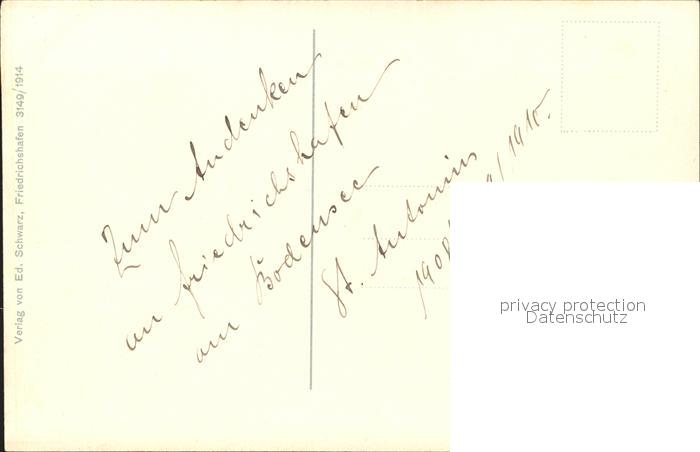 Verlag von Ed. Schwarz, Friedrichshafen 3149/1914
Zum Andenken
an Friedrichshafen
am Bodensee
St. Antonius
1908/ /1910.
privacy protection
Datenschutz